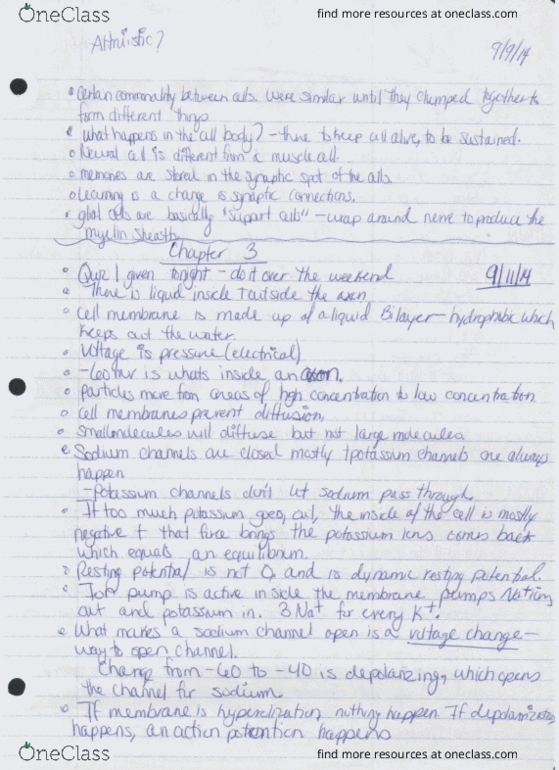 OneClass
find more resources at oneclass.com
Altruistic?
9/9/14
• Certain commonality between cells. Were similar until they clumped together to
form different things
• What happens in the cell body? - there to keep cell alive, to be sustained.
• Neural cell is different from a muscle cell.
• memories are stored in the synaptic spot of the cells
• Learning is a change is synaptic connections.
• glial cells are basically "support cells" - wrap around nerve to produce the
myelin sheath
Chapter 3
• Quiz 1 given tonight - do it over the weekend
9/11/14
• There is liquid inside + outside the axon
• Cell membrane is made up of a liquid Bilayer - hydrophobic which
keeps out the water.
• Voltage is pressure (electrical)
• -60 mv is whats inside an axon.
• particles move from areas of high concentration to low concentration
• cell membranes prevent diffusion,
• small molecules will diffuse but not large molecules
• Sodium channels are closed mostly + potassium channels are always
happen
- Potassium channels don't let sodium pass through
• If too much potassium goes, out, the inside of the cell is mostly
negative + that force brings the potassium ions comes back
which equals an equilibrium.
• Resting potential is not 0, and is dynamic resting potential.
• pump is active inside the membrane pumps
out and potassium in. 3 Na+ for every K+.
• What makes a sodium channel open is a voltage change -
way to open channel.
Change from -60 to -40 is depolarizing, which opens
the channel for sodium
• If membrane is hyperpolization nothing happen If
happens, an action potention happens
OneClass
find more resources at oneclass.com